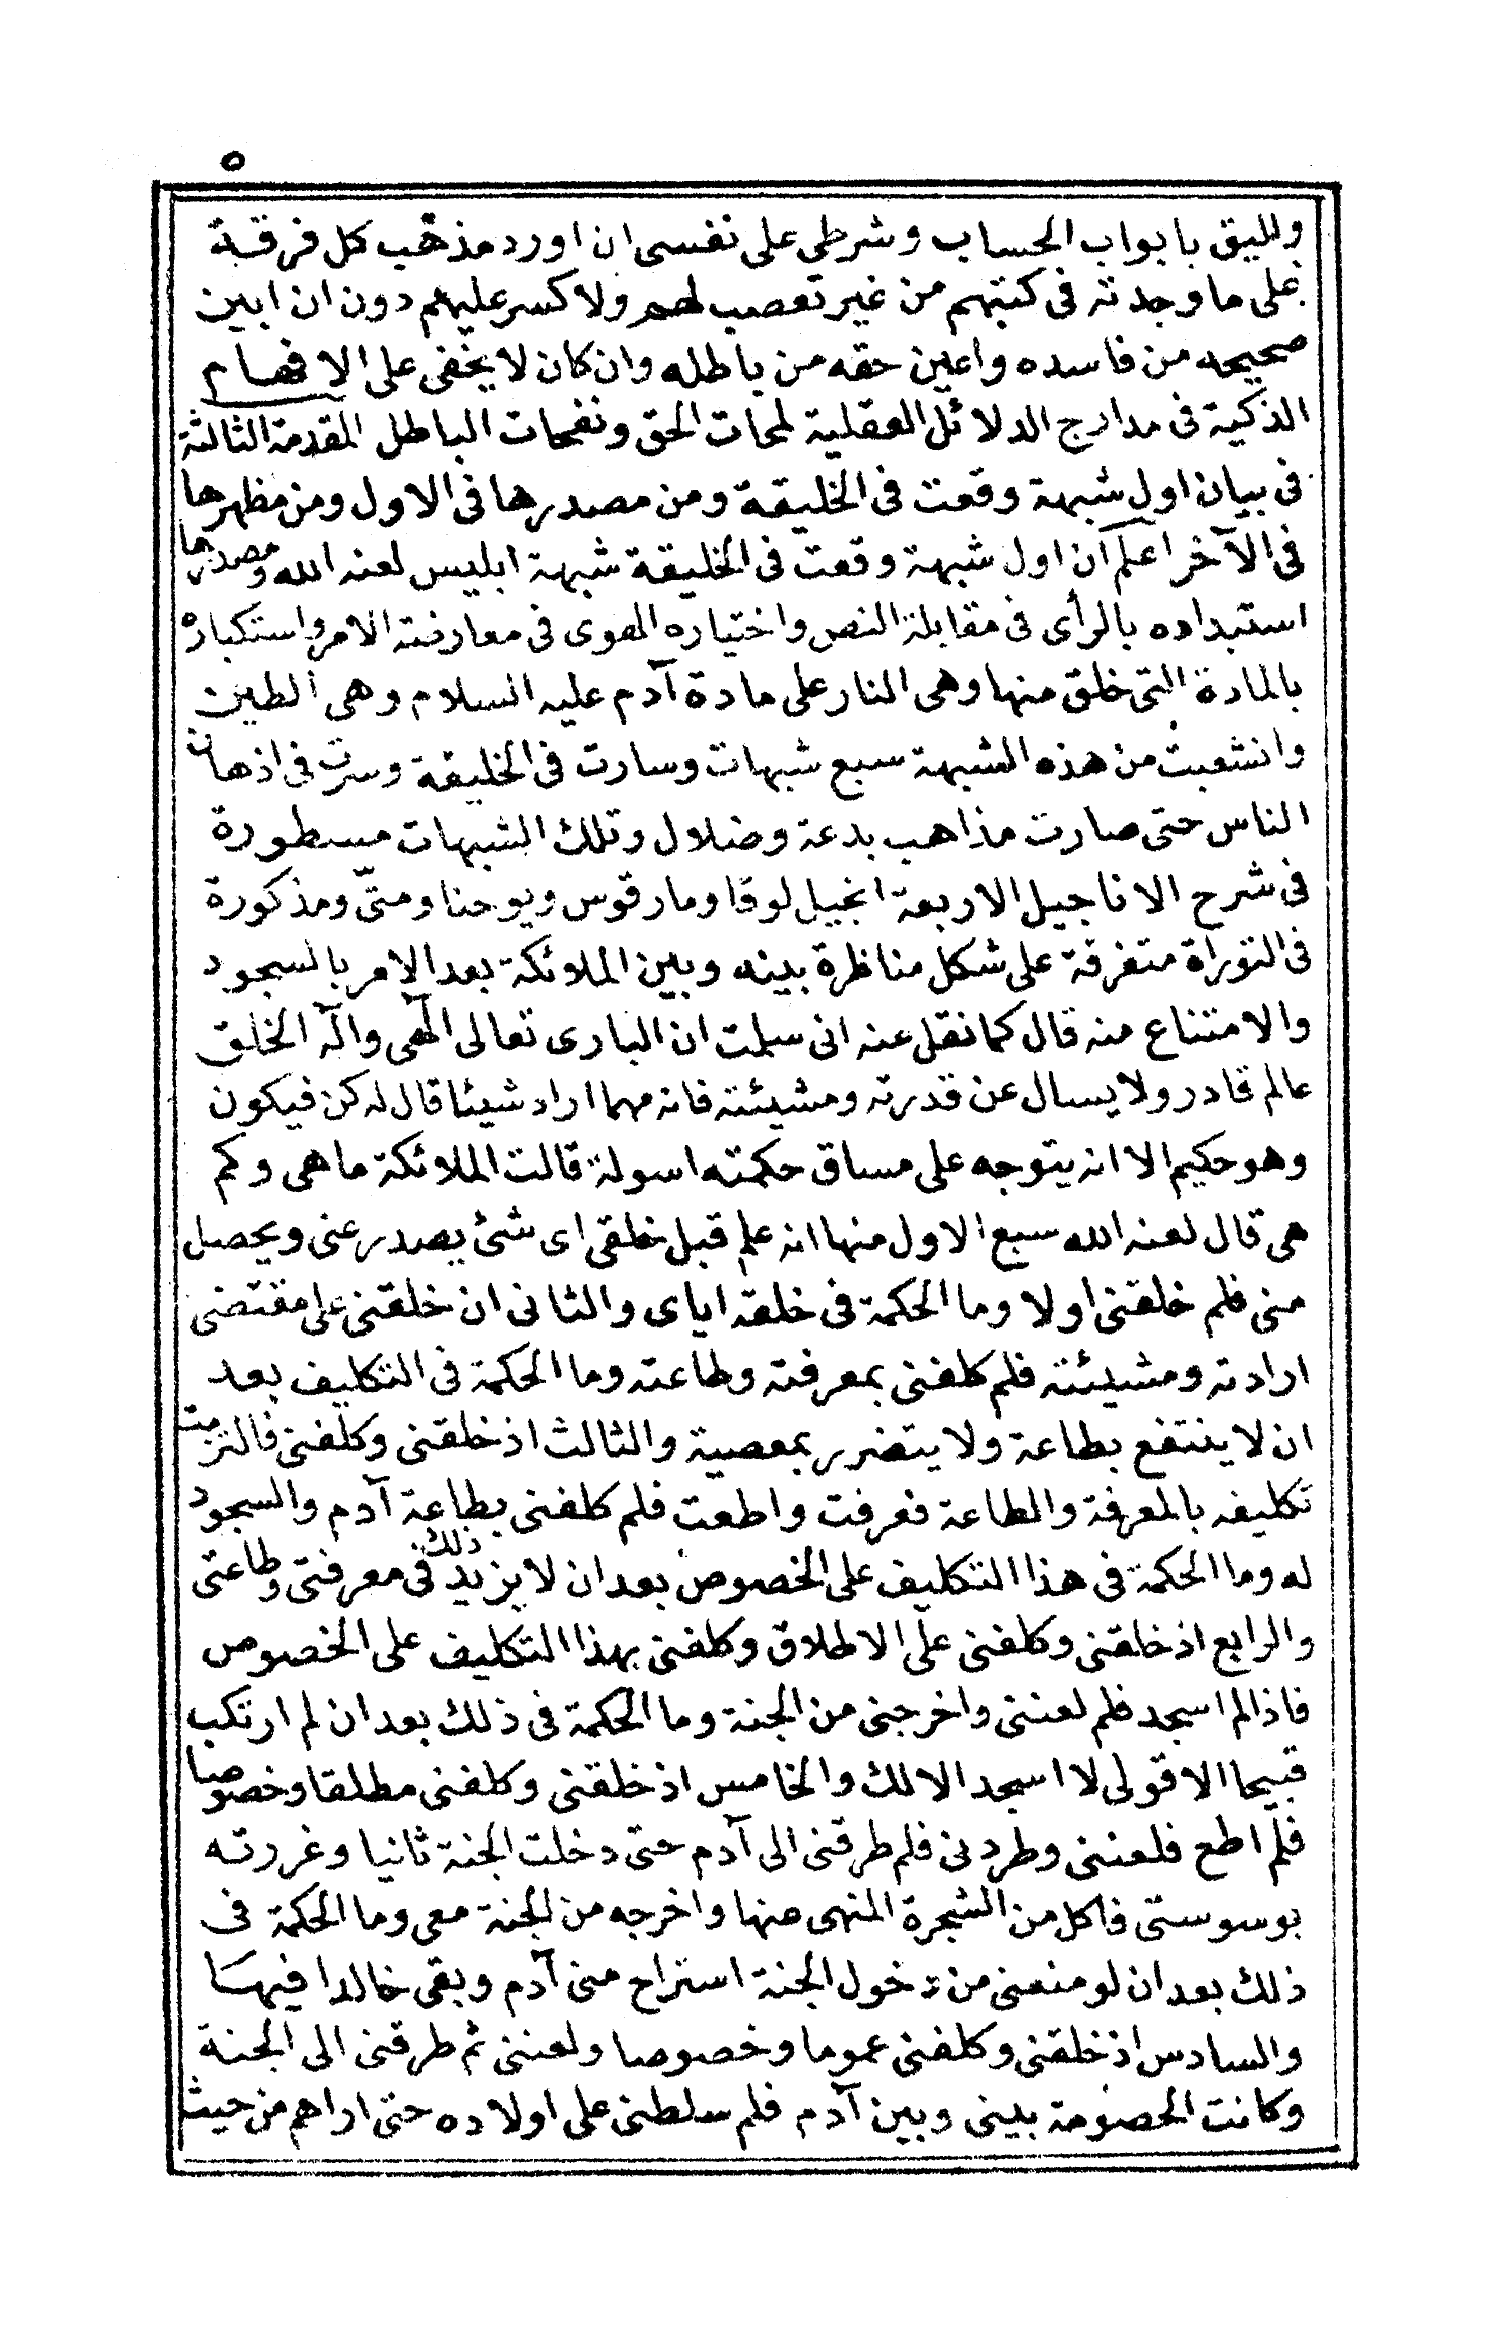 ٥
ويليق بابواب الحساب وشرطي على نفسى ان اورد مذهب كل فرقة
على ما وجدته فى كتبهم من غير تعصب لهم ولا كسر عليهم دون ان ابين
صحيحه من فاسده واعين حقه من باطله وان كان لا يخفى على الافهام
الذكية فى مدارج الدلائل العقلية لمحات الحق ونفحات الباطل المقدمة الثالثة
فى بيان اول شبهة وقعت فى الخليقة ومن مصدرها فى الاول ومن مظهرها
فى الآخر اعلم ان اول شبهة وقعت فى الخليقة شبهة ابليس لعنه الله ومصدرها
استبداده بالرأى فى مقابلة النص واختياره الهوى فى معارضة الامر واستكباره
بالمادة التى خلق منها وهى النار على مادة آدم عليه السلام وهى الطين
وانشعبت من هذه الشبهة سبع شبهات وسارت فى الخليقة وسرت فى اذهان
الناس حتى صارت مذاهب بدعة وضلال وتلك الشبهات مسطورة
فى شرح الاناجيل الاربعة انجيل لوقا ومارقوس ويوحنا ومتّى ومذكورة
فى التوراة متفرقة على شكل مناظرة بينه وبين الملائكة بعد الامر بالسجود
والامتناع منه قال كما نقل عنه انى سلمت ان البارى تعالى آلهى وآله الخلق
عالم قادر ولا يسال عن قدرته ومشيئته فانه مهما اراد شيئا قال له كن فيكون
وهو حكيم الا انه يتوجه على مساق حكمته اسولة قالت الملائكة ما هى وكم
هى قال لعنه الله سبع الاول منها انه علم قبل خلقى اى شئ يصدر عنى ويحصل
منى فلم خلقنى اولا وما الحكمة فى خلقه اياى والثانى ان خلقنى على مقتضى
ارادته ومشيئته فلم كلفنى بمعرفته وطاعته وما الحكمة فى التكليف بعد
ان لا ينتفع بطاعة ولا يتضرر بمعصية والثالث اذ خلقنى وكلفنى فالتزمت
تكليفه بالمعرفة والطاعة فعرفت واطعت فلم كلفنى بطاعة آدم والسجود
له وما الحكمة فى هذا التكليف على الخصوص بعد ان لا يزيد ذلك فى معرفتى وطاعتى
والرابع اذ خلقنى وكلفنى على الاطلاق وكلفنى بهذا التكليف على الخصوص
فاذا لم اسجد فلم لعننى واخرجنى من الجنة وما الحكمة فى ذلك بعد ان لم ارتكب
قبيحا الا قولى لا اسجد الا لك والخامس اذ خلقنى وكلفنى مطلقا وخصوصا
فلم اطع فلعننى وطردنى فلم طرقنى الى آدم حتى دخلت الجنة ثانيا وغررته
بوسوستى فاكل من الشجرة المنهى عنها واخرجه من الجنة معى وما الحكمة فى
ذلك بعد ان لو منعنى من دخول الجنة استراح منى آدم وبقى خالدا فيها
والسادس اذ خلقنى وكلفنى عموما وخصوصا ولعننى ثم طرقنى الى الجنة
وكانت الخصومة بينى وبين آدم فلم سلطنى على اولاده حتى اراهم من حيث